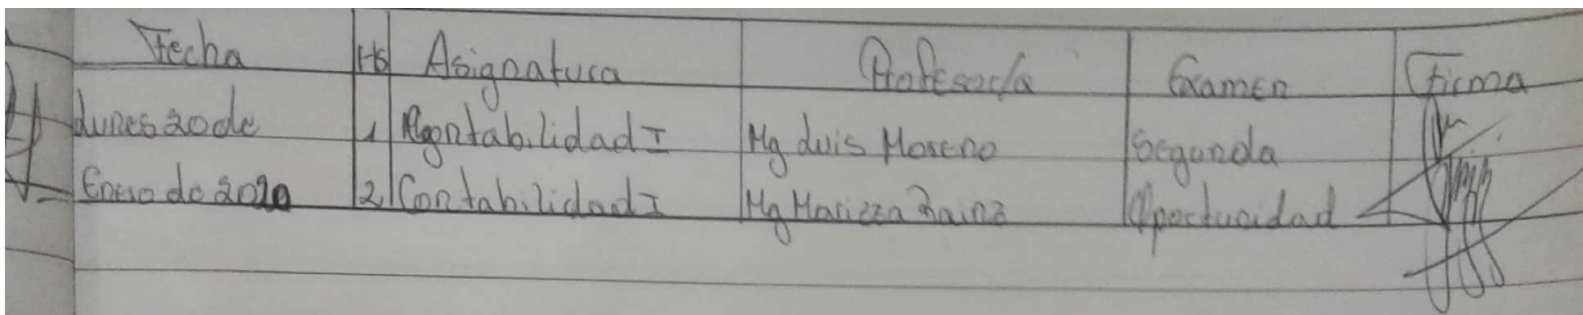 Fecha Hs Asignatura Profesor/a Examen Firma
Lunes 20 de 1 Contabilidad I Mg Luis Moreno Segunda
Enero de 2020 2 Contabilidad I Mg Marizza Oportunidad